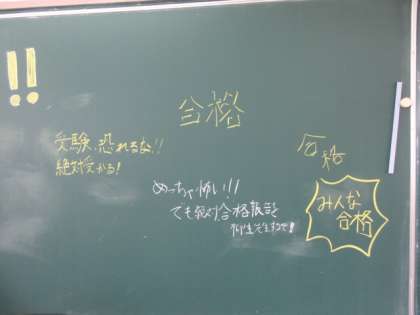 !!
合格
受験、恐れるな!!
絶対受かる!
合格
めっちゃ怖い!!!
でも絶対合格報告を
みんな
合格